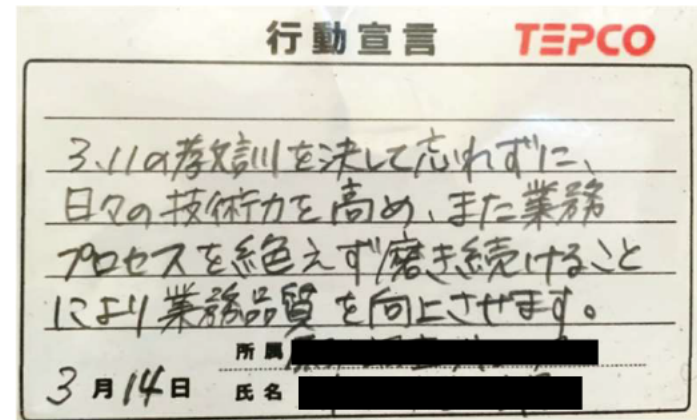 行動宣言 TEPCO
3.11の教訓を決して忘れずに、
日々の技術力を高め、また業務
プロセスを絶えず磨き続けること
により業務品質を向上させます。
所属
3月14日 氏名